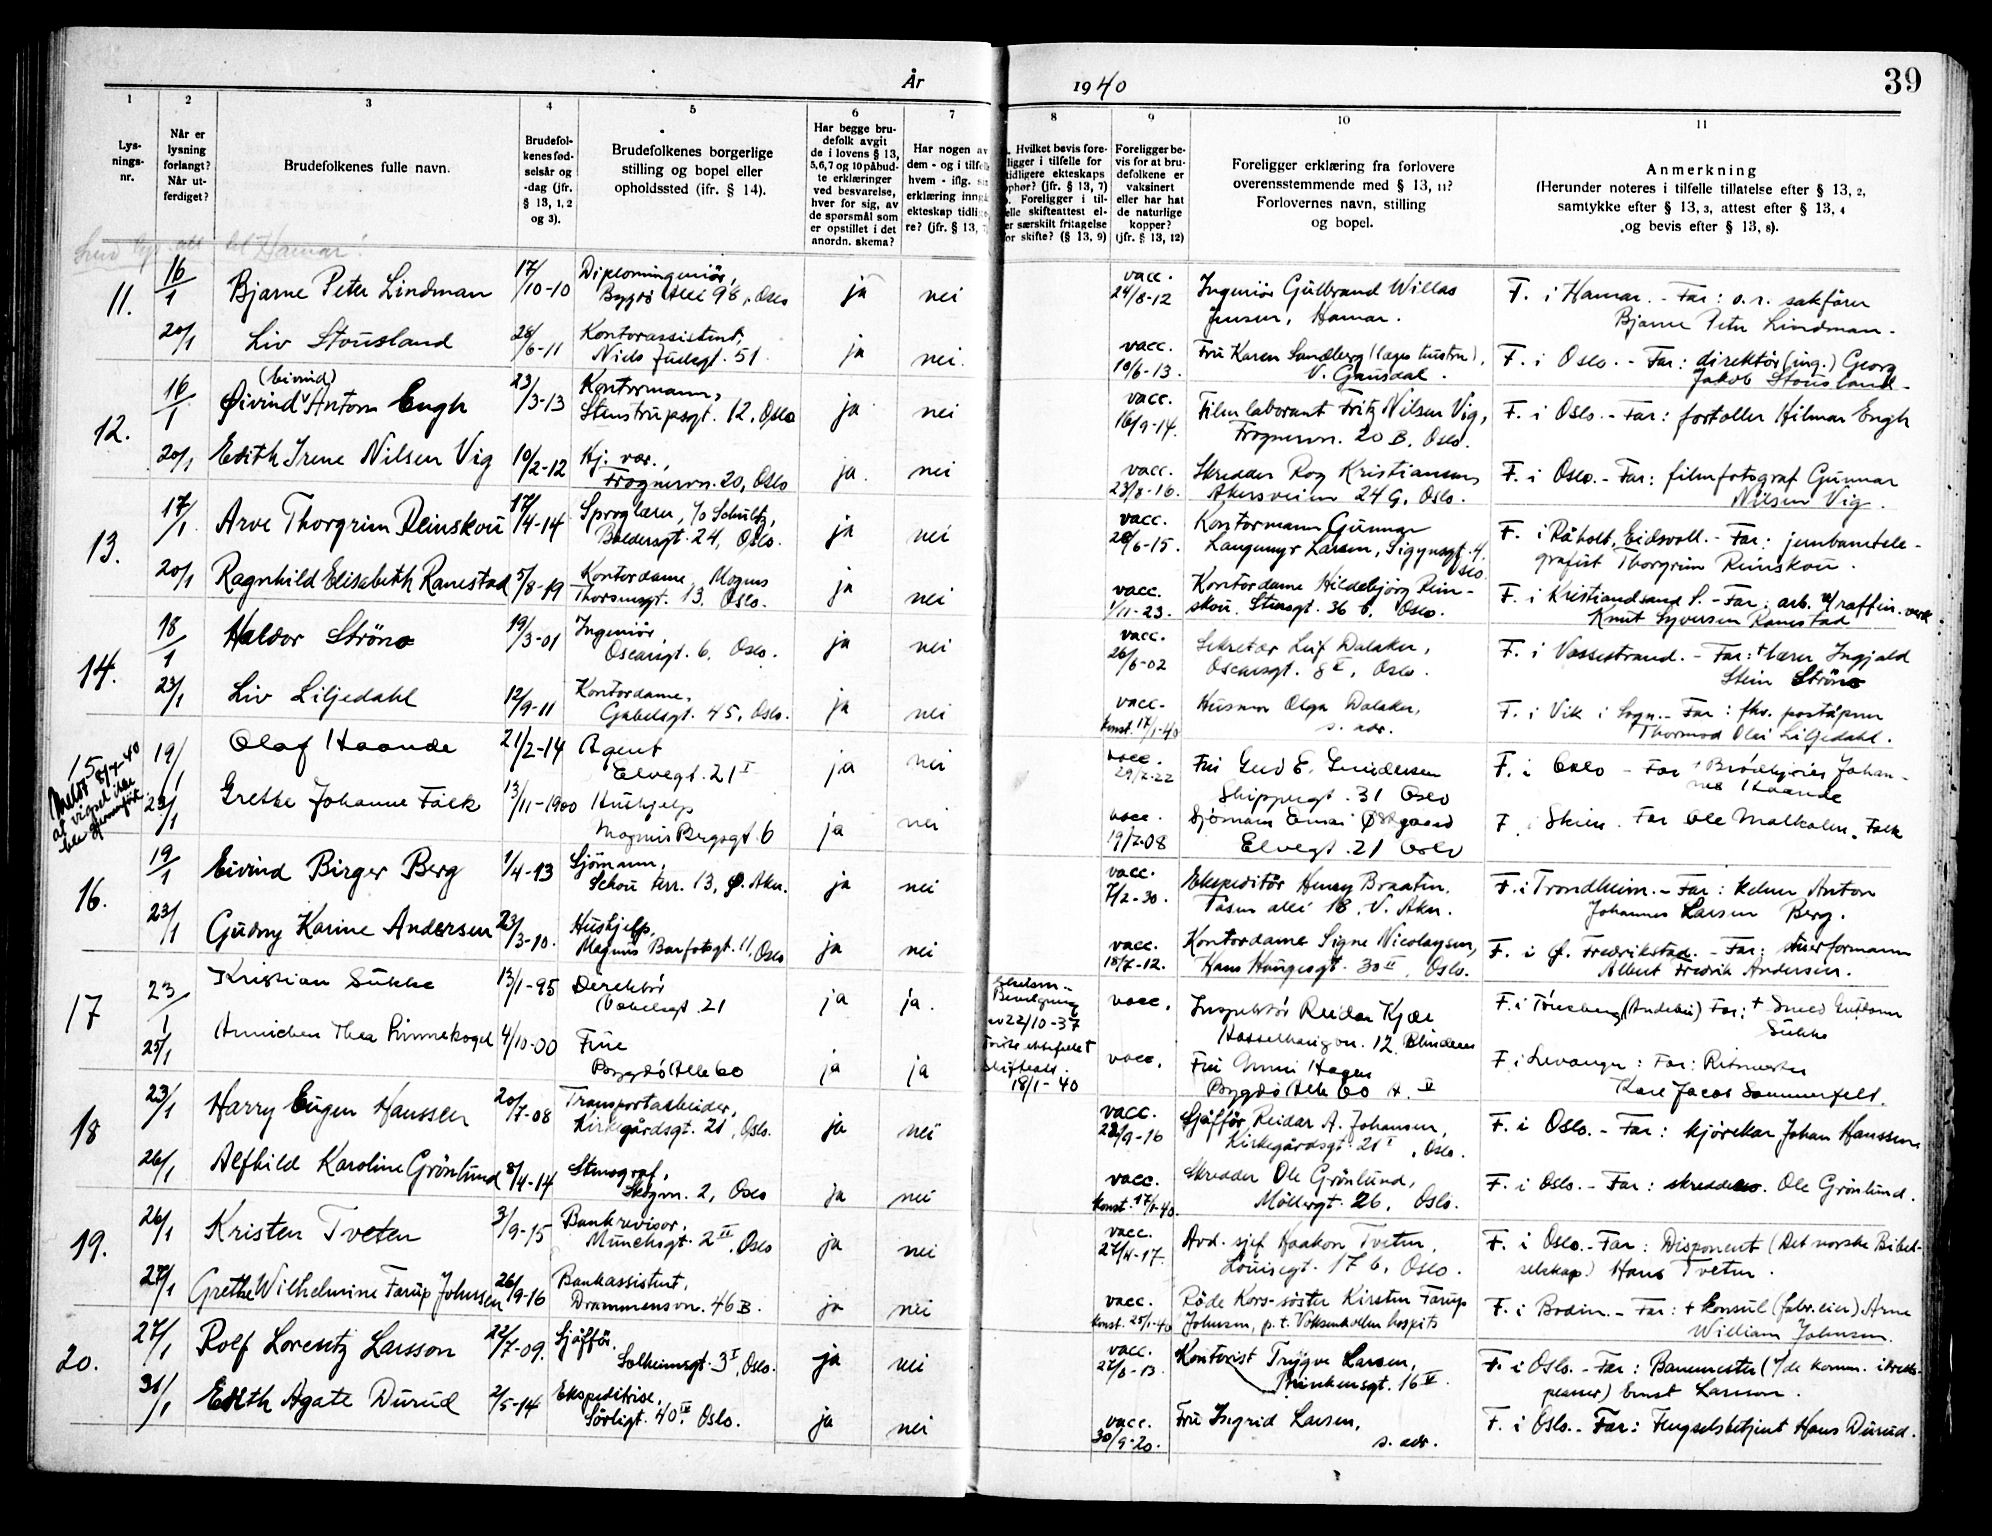 År 1940
39
1
2
3
4
5
6
7
8
9
10
11
Lys-
nings-
nr.
Når er
lysning
forlangt?
Når ut-
ferdiget?
Brudefolkenes fulle navn.
Brudefol-
kenes fød-
selsår og
-dag (jfr.
§ 13, 1, 2
og 3).
Brudefolkenes borgerlige
stilling og bopel eller
opholdssted (ifr. § 14).
Har begge bru-
defolk avgit
de i lovens § 13,
5,6,7 og 10 påbud-
te erklæringer
ved besvarelse,
hver for sig, av
de spørsmål som
er opstillet i det
anordn. skema?
Har nogen av
dem - og i tilfelle
hvem - iflg. sin
erklæring inngå
ekteskap tidlige
re? (jfr. § 13, 7
. Hvilket bevis fore-
ligger i tilfelle for
tidligere ekteskaps
ophør? (jfr. § 13, 7)
. Foreligger i til-
elle skifteattest el-
er særskilt fritagelse
or skifte? (§ 13, 9)
Foreligger be-
vis for at bru-
defolkene er
vaksinert
eller har hat
de naturlige
kopper?
(jfr. § 13, 12)
Foreligger erklæring fra forlovere
overensstemmende med § 13, 11?
Forlovernes navn, stilling
og bopel.
Anmerkning
(Herunder noteres i tilfelle tillatelse efter § 13, 2,
samtykke efter § 13, 3, attest efter § 13, 4
og bevis efter § 13, 8).
Hamar!
11.
16/1
Bjarne Peter Lindman
17/10-10
Diplomingeniör,
Bygdö Allé 96, Oslo
ja
nei
vacc.
24/8-12
Ingeniör Gulbrand Willas
Jensen, Hamar.
F. i Hamar. - Far: o.r. sakförer
Bjarne Peter Lindman.
20/1
Liv Stousland
28/6-11
Kontorassistent,
Niels Juelsgt. 51
ja
nei.
vacc.
10/6-13.
Fru Karen Sandberg (læges hustru),
V. Gausdal.
F. i Oslo. - Far: direktör (ing.) Georg
Jakob Stousland.
12.
16/1
(Eivind)
Øivind Anton Engh
23/3-13
Kontormann,
Stenstrupsgt. 12, Oslo
ja
nei
vacc.
16/9-14.
Filmlaborant Fritz Nilsen Vig,
Frognervn. 20 B, Oslo.
F. i Oslo. - Far: fortoller Hilmar Engh
20/1
Edith Irene Nilsen Vig
10/2-12
Hj. vær.,
Frognervn. 20, Oslo
ja.
nei
vacc.
23/8-16.
Skredder Roy Kristiansen
Akersveien 24 G, Oslo.
F. i Oslo. - Far: filmfotograf Gunnar
Nilsen Vig.
13.
17/1
Arve Thorgrim Reinskou
17/4-14
Sproglærer, c/o Schultz,
Baldersgt. 24, Oslo.
ja
nei
vacc.
28/6-15.
Kontormann Gunnar
Langmyr Larsen, Sigynsgt. 4,
Oslo.
F. i Råholt, Eidsvoll. - Far: jernbanetele-
grafist Thorgrim Reinskou.
20/1
Ragnhild Elisabeth Ranestad
5/8-19
Kontordame, Mogens
Thorsensgt. 13, Oslo.
ja
nei
vacc.
1/11-23.
Kontordame Hildebjörg Rein-
skou, Stensgt. 36 b, Oslo.
F. i Kristiansand S. - Far: arb. v/ raffin. verk
Knut Syversen Ranestad
14.
18/1
Haldor Ströno
19/3-01
Ingeniör,
Oscarsgt. 6, Oslo.
ja
nei
vacc.
26/6-02
Sekretær Leif Dalaker,
Oscarsgt. 8 II, Oslo.
F. i Vossestrand. - Far: + lærer Ingjald
Stein Ströno
23/1
Liv Liljedahl
12/9-11
Kontordame,
Gabelsgt. 45, Oslo.
ja
nei
vacc.
konst. 17/1-40
Husmor Olga Dalaker,
s. adr.
F. i Vik i Sogn. - Far: fhv. poståpner
Thormod Olai Liljedahl.
15
Meldt 8/4-40
at vigsel ikke
ble gjennemført.
19/1
Olaf Haande
21/2-14
Agent
Elvegt. 21 I
ja
nei
vacc.
29/2-22
Fru Gerd E.
Skippergt. 31 Oslo
F. i Oslo - Far + Johan-
nes Haande
23/1
Grethe Johanne Falk
13/11-1900
Hushjelp
Magnus Bergsgt. 6
ja
nei
vacc.
19/2-08
Sjömann Einar Østgaard
Elvegt. 21 Oslo
F. i Skien. Far Ole Malkolm. Falk
16.
19/1
Eivind Birger Berg
1/4-13
Sjömann,
Schou terr. 13, Ø. Aker.
ja
nei
vacc.
7/2-30.
Ekspeditör Henry Braaten,
Tåsen allé 18, V. Aker.
F. i Trondheim. - Far: kelner Anton
Johannes Larsen Berg.
23/1
Gudny Karine Andersen
23/3-10.
Hushjelp,
Magnus Barfotsgt. 11, Oslo
ja
nei
vacc.
18/7-12.
Kontordame Signe Nicolaysen,
Hans Haugesgt. 30 II, Oslo.
F. i Ø. Fredrikstad. - Far: stuerformann
Albert Fredrik Andersen.
17
23/1
Kristian Sukke
13/1-95
Direktör
21
ja
ja.
Bevilgning
av 22/10-37
vacc.
Inspektör Reidar Kjær
12, Blindern
F. i Tönsberg (Andebu) Far: +
Sukke
25/1
Annichen Thea Rinnekogel
4/10-00
Frue
Bygdö Alle 60
ja
ja
skifteatt.
18/1-40
vacc.
Fru Hagen
Bygdö Alle 60 A. IV
F. i Levanger: Far: Ritmester
Kare Jacob Sommerfelt.
18
23/1
Harry Eugen Hanssen
20/7-08
Transportarbeider,
Kirkegårdsgt. 21, Oslo.
ja
nei
vacc.
28/9-16
Sjåför Reidar A. Johansen,
Kirkegårdsgt. 21 I, Oslo.
F. i Oslo. - Far: kjörekar Johan Hanssen
26/1
Alfhild Karoline Grönlund
8/4-14
Stenograf,
Skogvn. 2, Oslo
ja
nei
vacc.
konst. 17/1-40.
Skredder Ole Grönlund,
Möllergt. 26, Oslo.
F. i Oslo. - Far: skredder Ole Grönlund.
19.
26/1
Kristen Tveter
3/9-15
Bankrevisor,
Munchsgt. 2 II, Oslo
ja
nei
vacc.
27/4-17.
Avd. sjef Haakon Tveter,
Louisegt. 17 b, Oslo.
F. i Oslo. - Far: Disponent (Det norske Bibel-
selskap) Hans Tveter.
27/1
Grethe Wilhelmine Farup Johnsen
26/9-16
Bankassistent,
Drammensvn. 46 B.
ja
nei
vacc.
konst. 25/1-40
Röde Kors-söster Kirsten Farup
Johnsen, p.t. Voksenkollen hospits
F. i Bodin. - Far: + konsul (fabr. eier) Arne
William Johnsen.
20.
27/1
Rolf Lorentz Larsson
22/7-09.
Sjåför,
Solheimsgt. 3 I, Oslo.
ja
nei
vacc.
27/6-13
Kontorist Trygve Larsen,
Brinkensgt. 16 IV.
F. i Oslo. - Far: Banemester (v/de komm. idretts-
plasser) Ernst Larsson.
31/1
Edith Agate Durud
2/5-14
Ekspeditrise,
Sörligt. 40 IV, Oslo.
ja
nei
vacc.
30/9-20.
Fru Ingrid Larsen,
s. adr.
F. i Oslo. - Far: Fengselsbetjent Hans Durud.